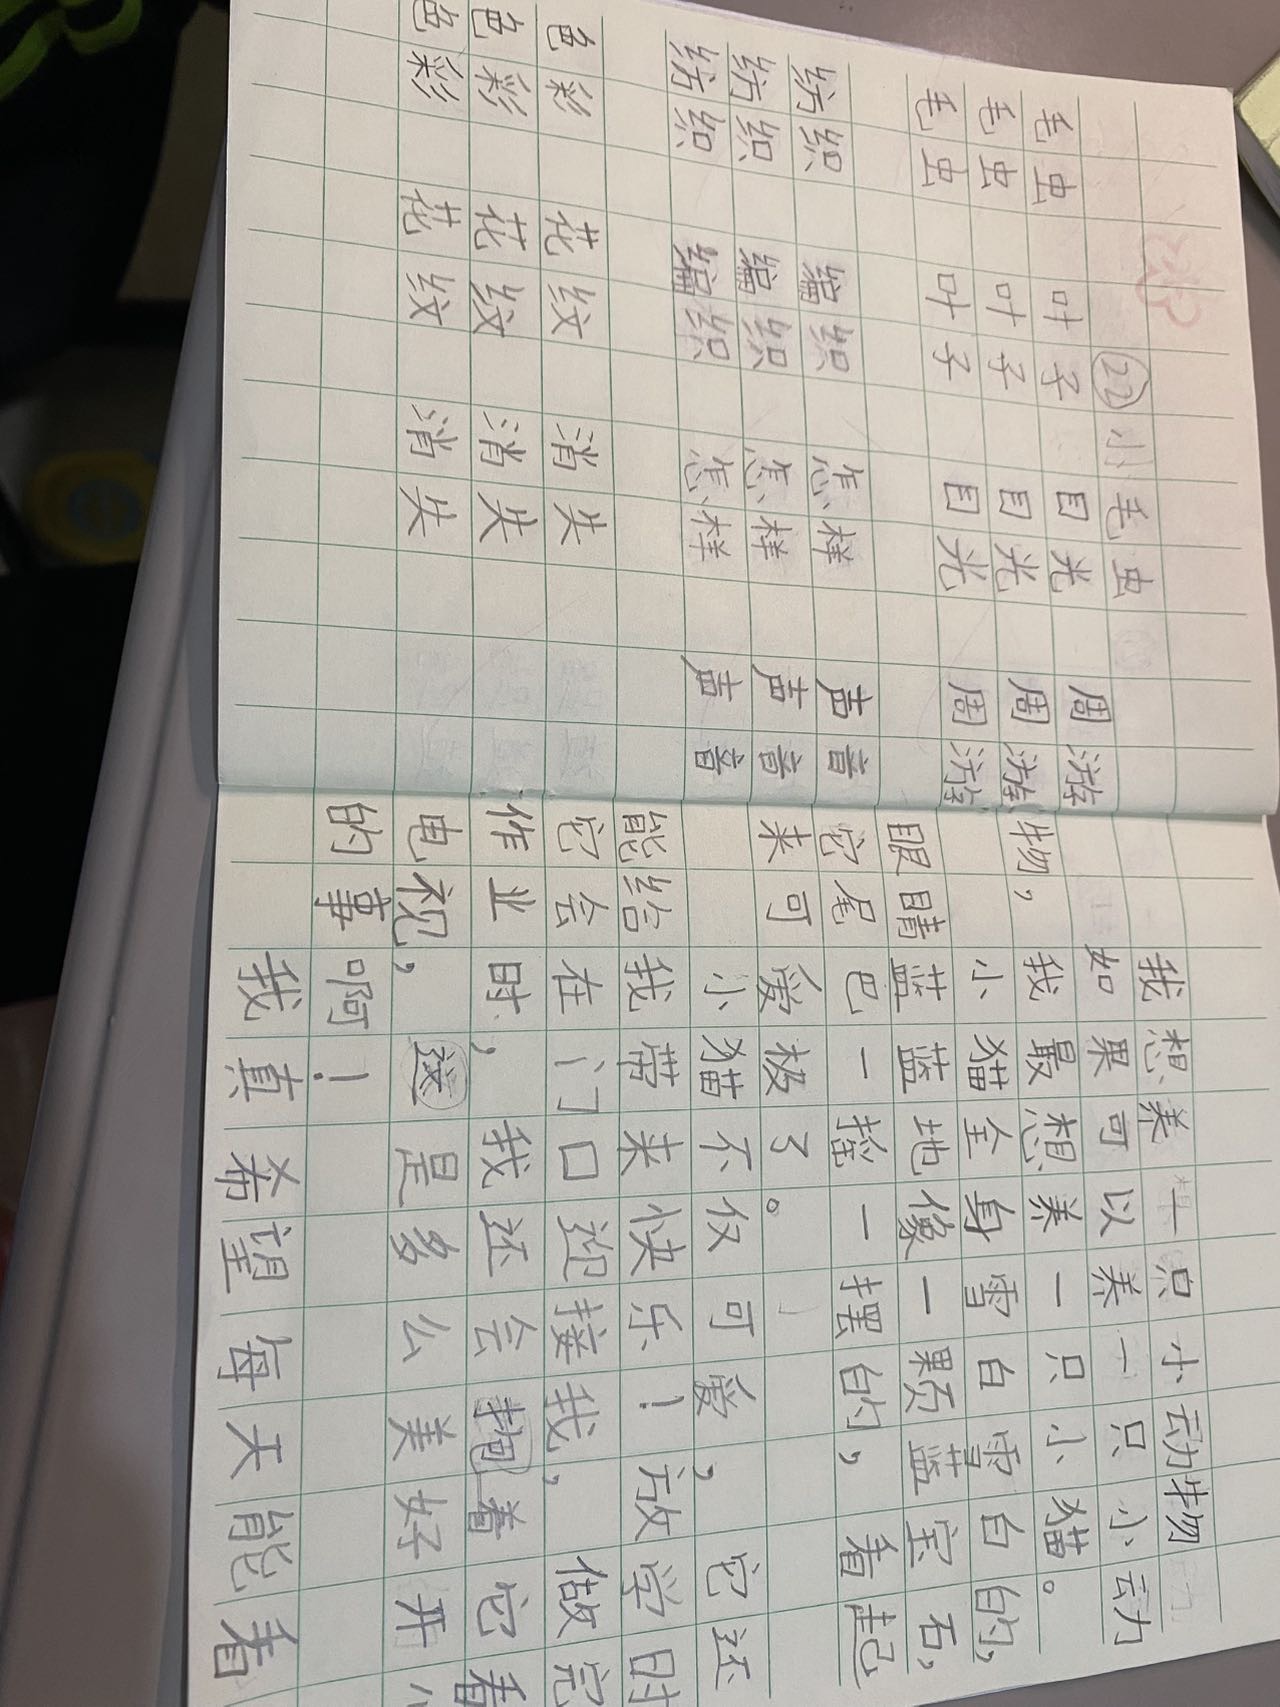 ㉒小毛虫
毛虫 叶子 目光 周游
毛虫 叶子 目光 周游
毛虫 叶子 目光 周游
纺织 编织 怎样 声音
纺织 编织 怎样 声音
纺织 编织 怎样 声音
色彩 花纹 消失
色彩 花纹 消失
色彩 花纹 消失
我想养一只小动物
如果可以养一只小动
物，我最想养一只小猫。
小猫全身雪白雪白的，
眼睛蓝蓝地像一颗蓝宝石，
它尾巴一摇一摆的，看起
来可爱极了。
小猫不仅可爱，它还
能给我带来快乐！放学时
它会在门口迎接我，做完
作业时，我还会抱着它看
电视，这是多么美好开
的事啊！
我真希望每天能看